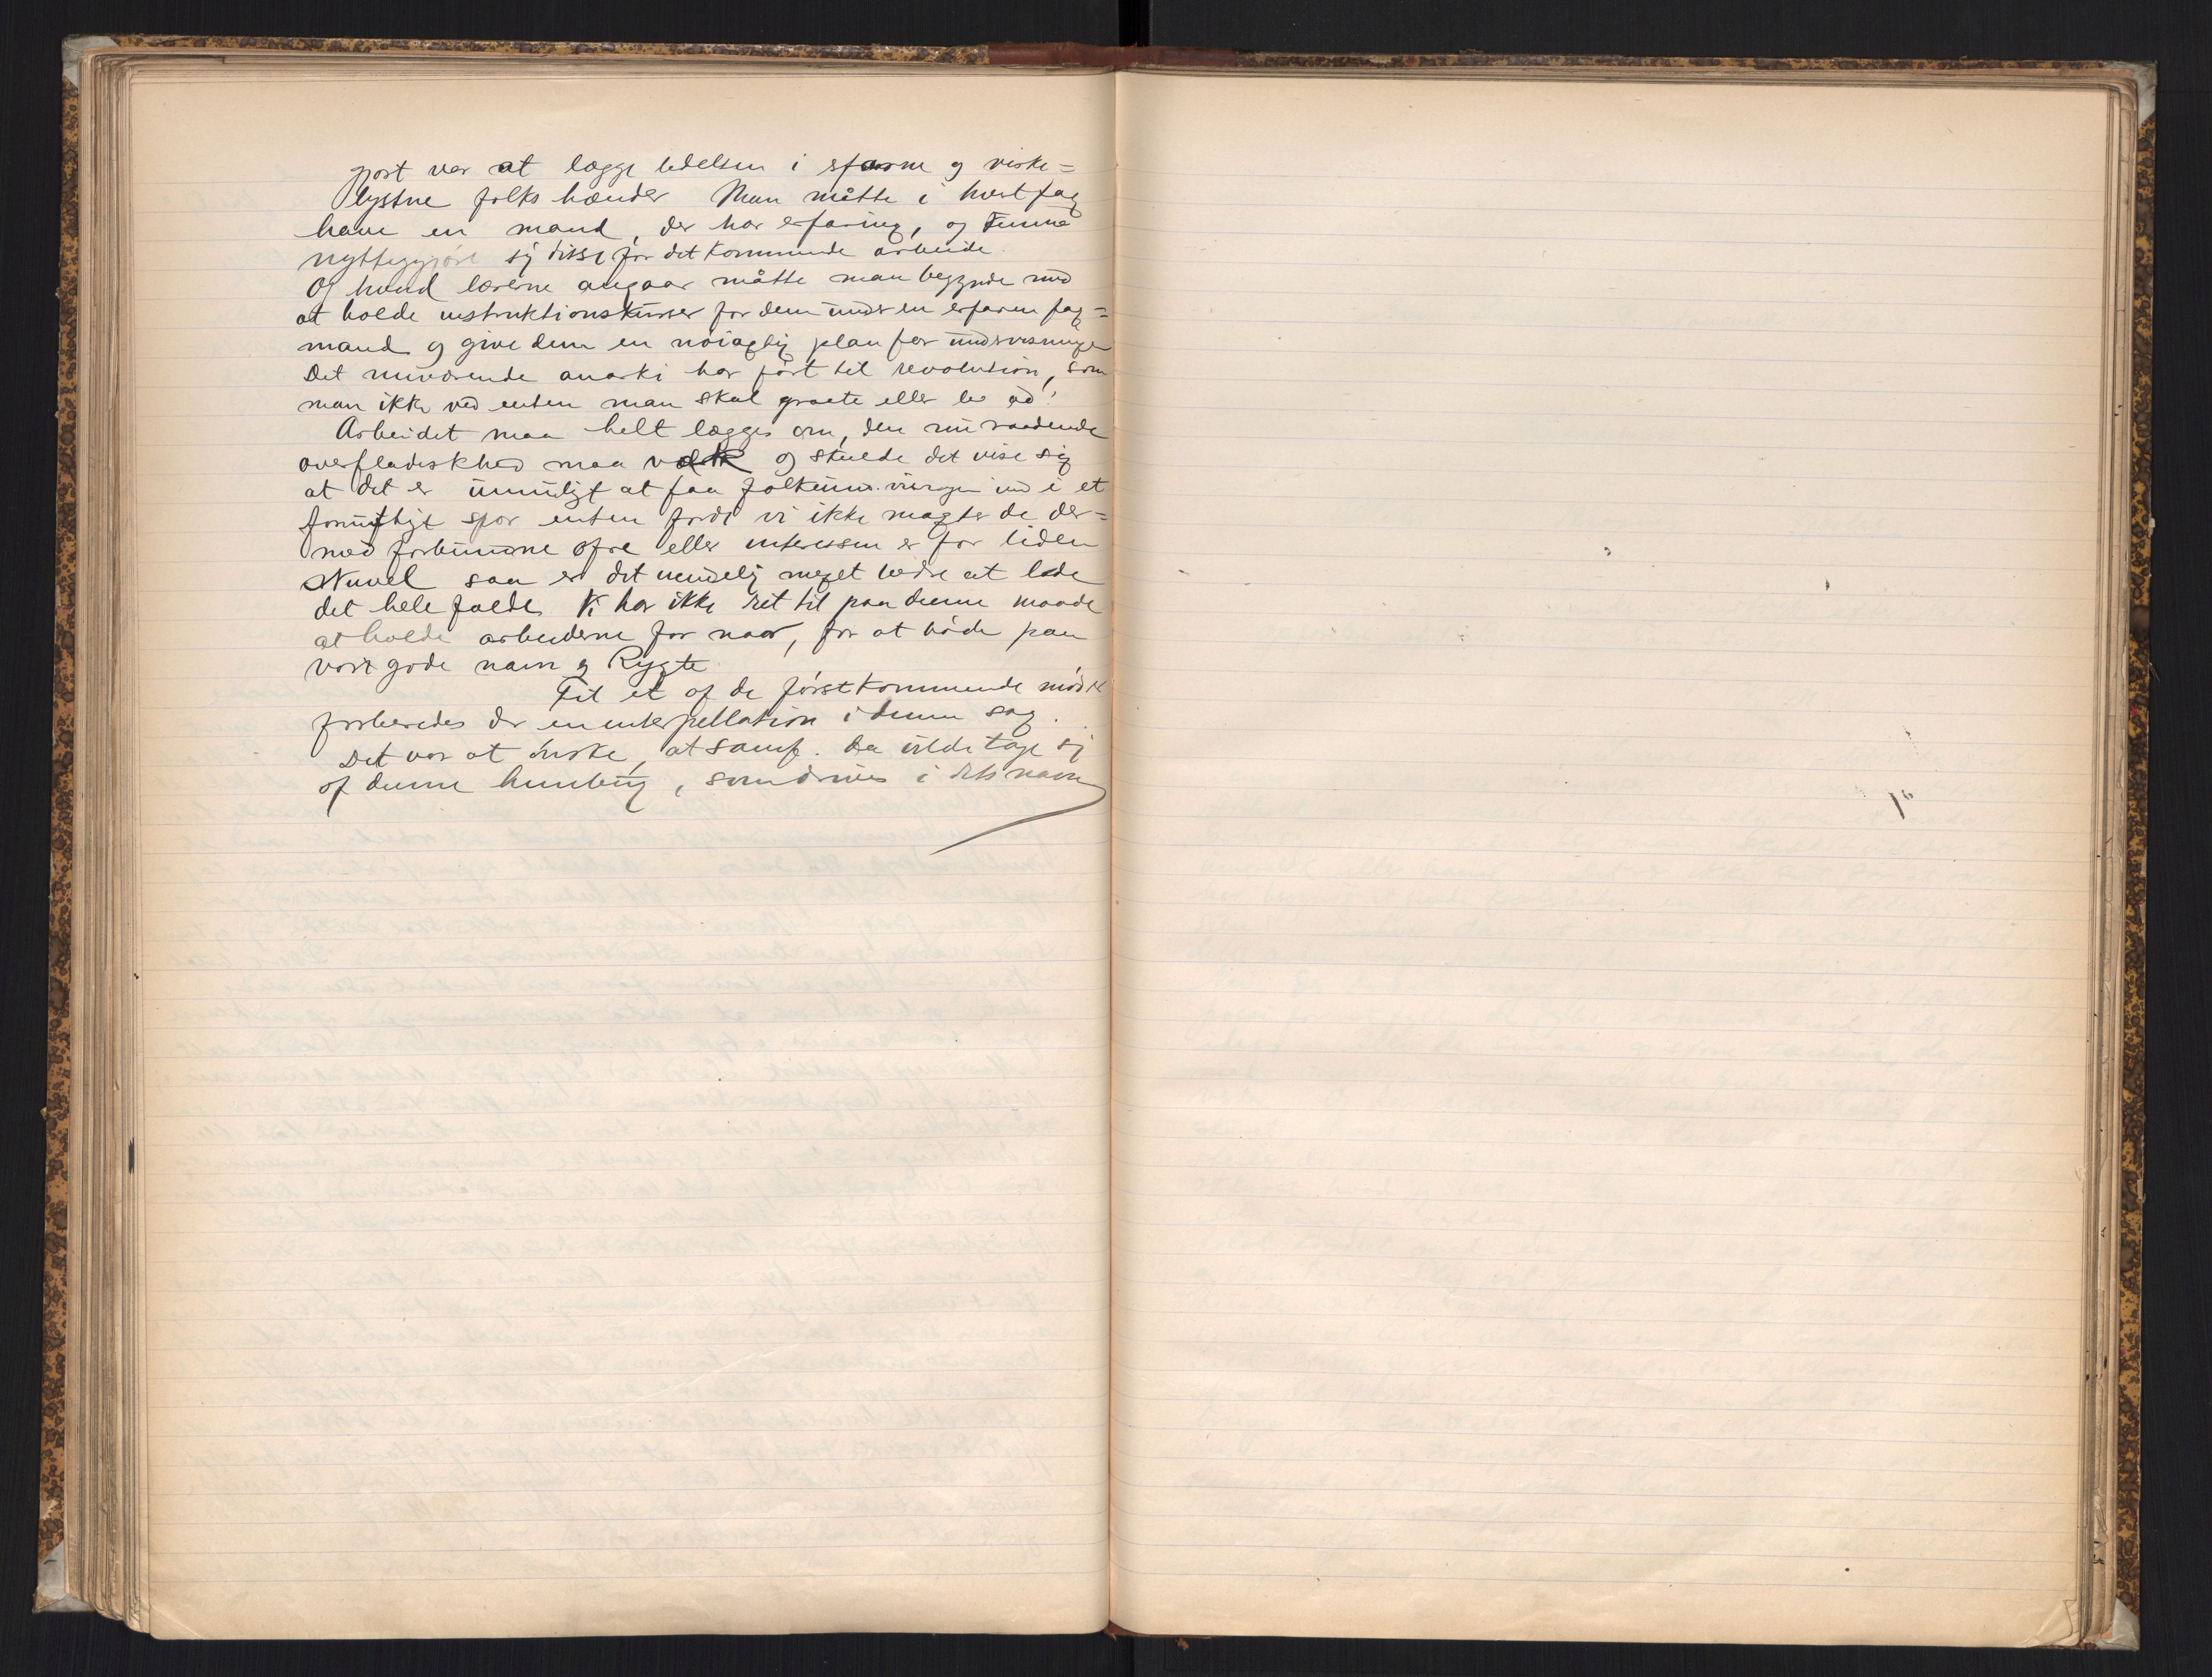 gjort var at lægge ledelsen i erfarne og virke=
lystne folks hænder Man måtte i hvert fag
have en mand, der har erfaring, og kunne
nyttegjøre sig disse for det kommende arbeide.
Og hvad lærerne angaar måtte man begynde med
at holde instruktionskurser for dem under en erfaren fag=
mand og give dem en nöiagtig plan for undervisningen
Det nuværende anarki har fört til revolution, som
man ikke ved enten man skal graate eller le ad!
Arbeidet maa helt lægges om, den nu raadende
overfladiskhed maa væk og skulde det vise sig
at det er umuligt at faa folkeund.visningen ind i et
fornuftigt spor enten fordi vi ikke magter de der=
med forbundne ofre eller interessen er for liden
Nuvel saa er det uendelig meget bedre at lade
det hele falde. Vi har ikke ret til paa denne maade
at holde arbeiderne for nar, for at böde paa
vort gode navn og Rygte
Til et af de förstkommende möder
forberedes der en interpellation i denne sag.
Det var at önske, at samf. da vilde tage sig
af denne humbug, som drives i dets navn